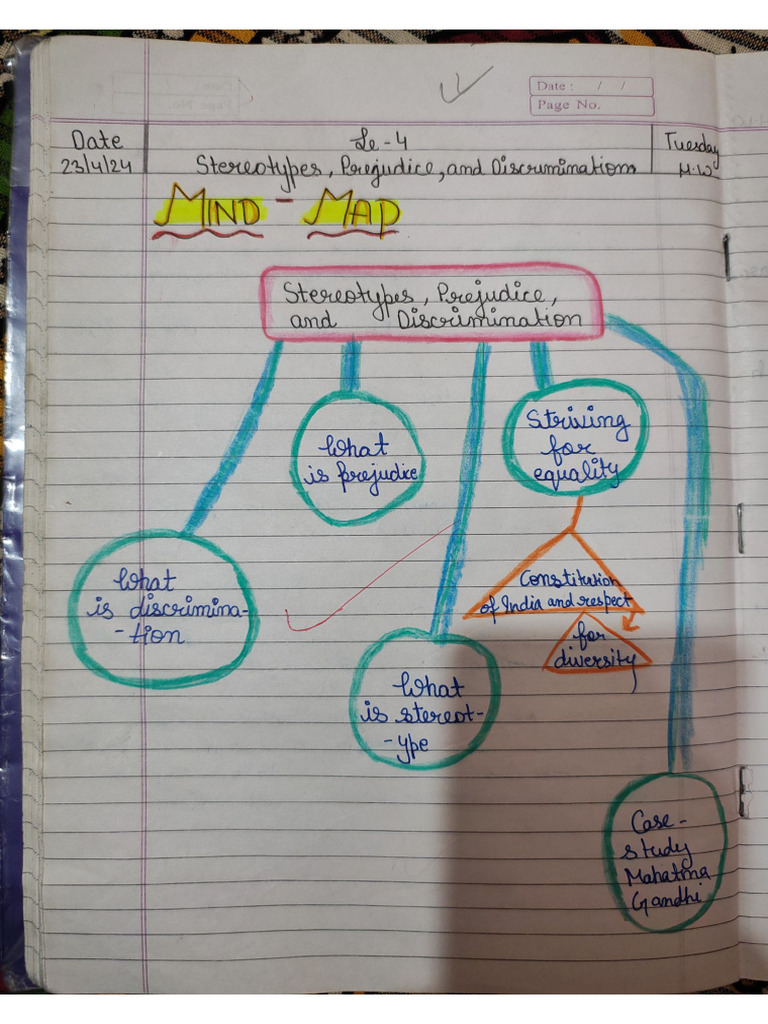 Date : / /
Page No.
Date
23/4/24
Le-4
Stereotypes, Prejudice, and Discrimination
Tuesday
H.W
MIND - MAP
Stereotypes, Prejudice,
and Discrimination
What
is prejudice
Striving
for
equality
What
is discrimina-
-tion
Constitution
of India and respect
for
diversity
What
is stereot-
-ype
Case-
study
Mahatma
Gandhi